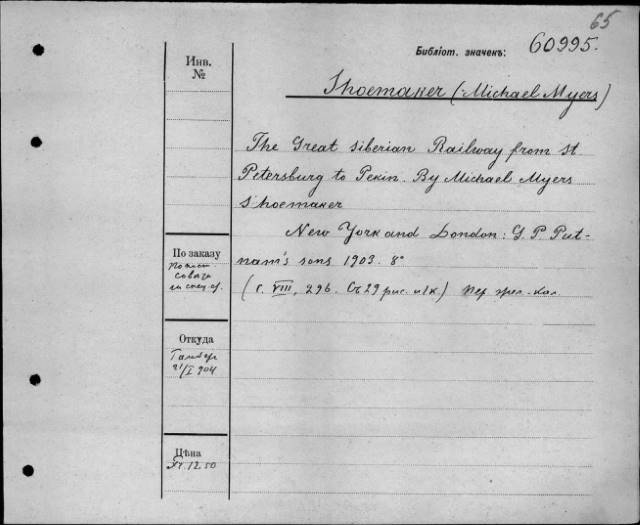 65
Библіот. значекъ: 60995.
Инв.
№
Shoemaker (Michael Myers)
The Great Siberian Railway from St
Petersburg to Pekin. By Michael Myers
Shoemaker
New York and London: G. P. Put-
nam's sons 1903. 8°
(с. VIII, 296. Съ 29 рис. и 1 к) пер
По заказу
Откуда
21/I 904
Цѣна
12.50